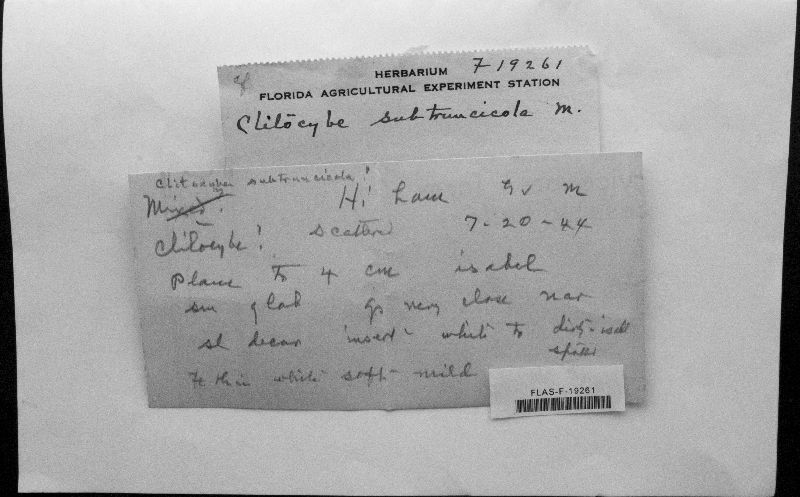 HERBARIUM F-19261
FLORIDA AGRICULTURAL EXPERIMENT STATION
Clitocybe subtruncicola M.
Clitocybe subtruncicola!
Mixed.
Hi ham Gv M
Clitocybe! scattered 7-20-44
Plane to 4 cm isabel
sm glab gs very close nar
sl decur insert white to dirty isabel
spotted
Ft thin white soft mild
FLAS-F-19261